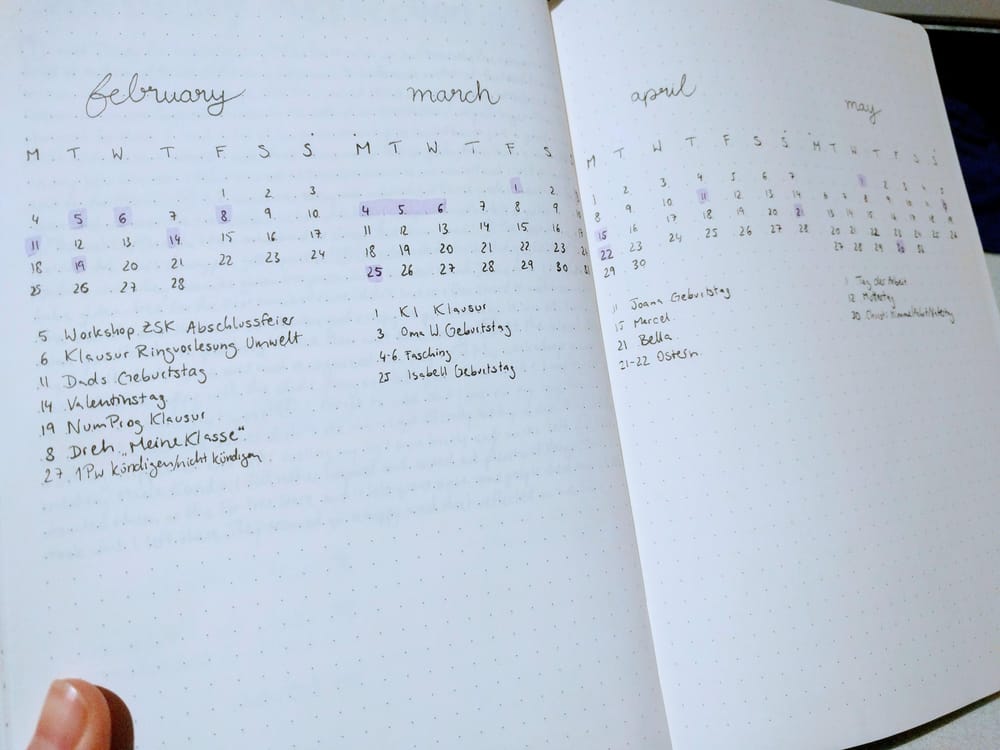 february
M T W T F S S
1 2 3
4 5 6 7 8 9 10
11 12 13 14 15 16 17
18 19 20 21 22 23 24
25 26 27 28
5 Workshop ZSK Abschlussfeier
6 Klausur Ringvorlesung Umwelt
11 Dads Geburtstag
14 Valentinstag
19 NumProg Klausur
8 Dreh "Meine Klasse"
27 1PW kündigen/nicht kündigen
march
M T W T F S S
1 2 3
4 5 6 7 8 9 10
11 12 13 14 15 16 17
18 19 20 21 22 23 24
25 26 27 28 29 30 31
1 KI Klausur
3 Oma W. Geburtstag
4-6 Fasching
25 Isabell Geburtstag
april
M T W T F S S
1 2 3 4 5 6 7
8 9 10 11 12 13 14
15 16 17 18 19 20 21
22 23 24 25 26 27 28
29 30
11 Joana Geburtstag
15 Marcel
21 Bella
21-22 Ostern
may
M T W T F S S
1 2 3 4 5
6 7 8 9 10 11 12
13 14 15 16 17 18 19
20 21 22 23 24 25 26
27 28 29 30 31
1 Tag der Arbeit
12 Muttertag
30 Christi Himmelfahrt/Vatertag